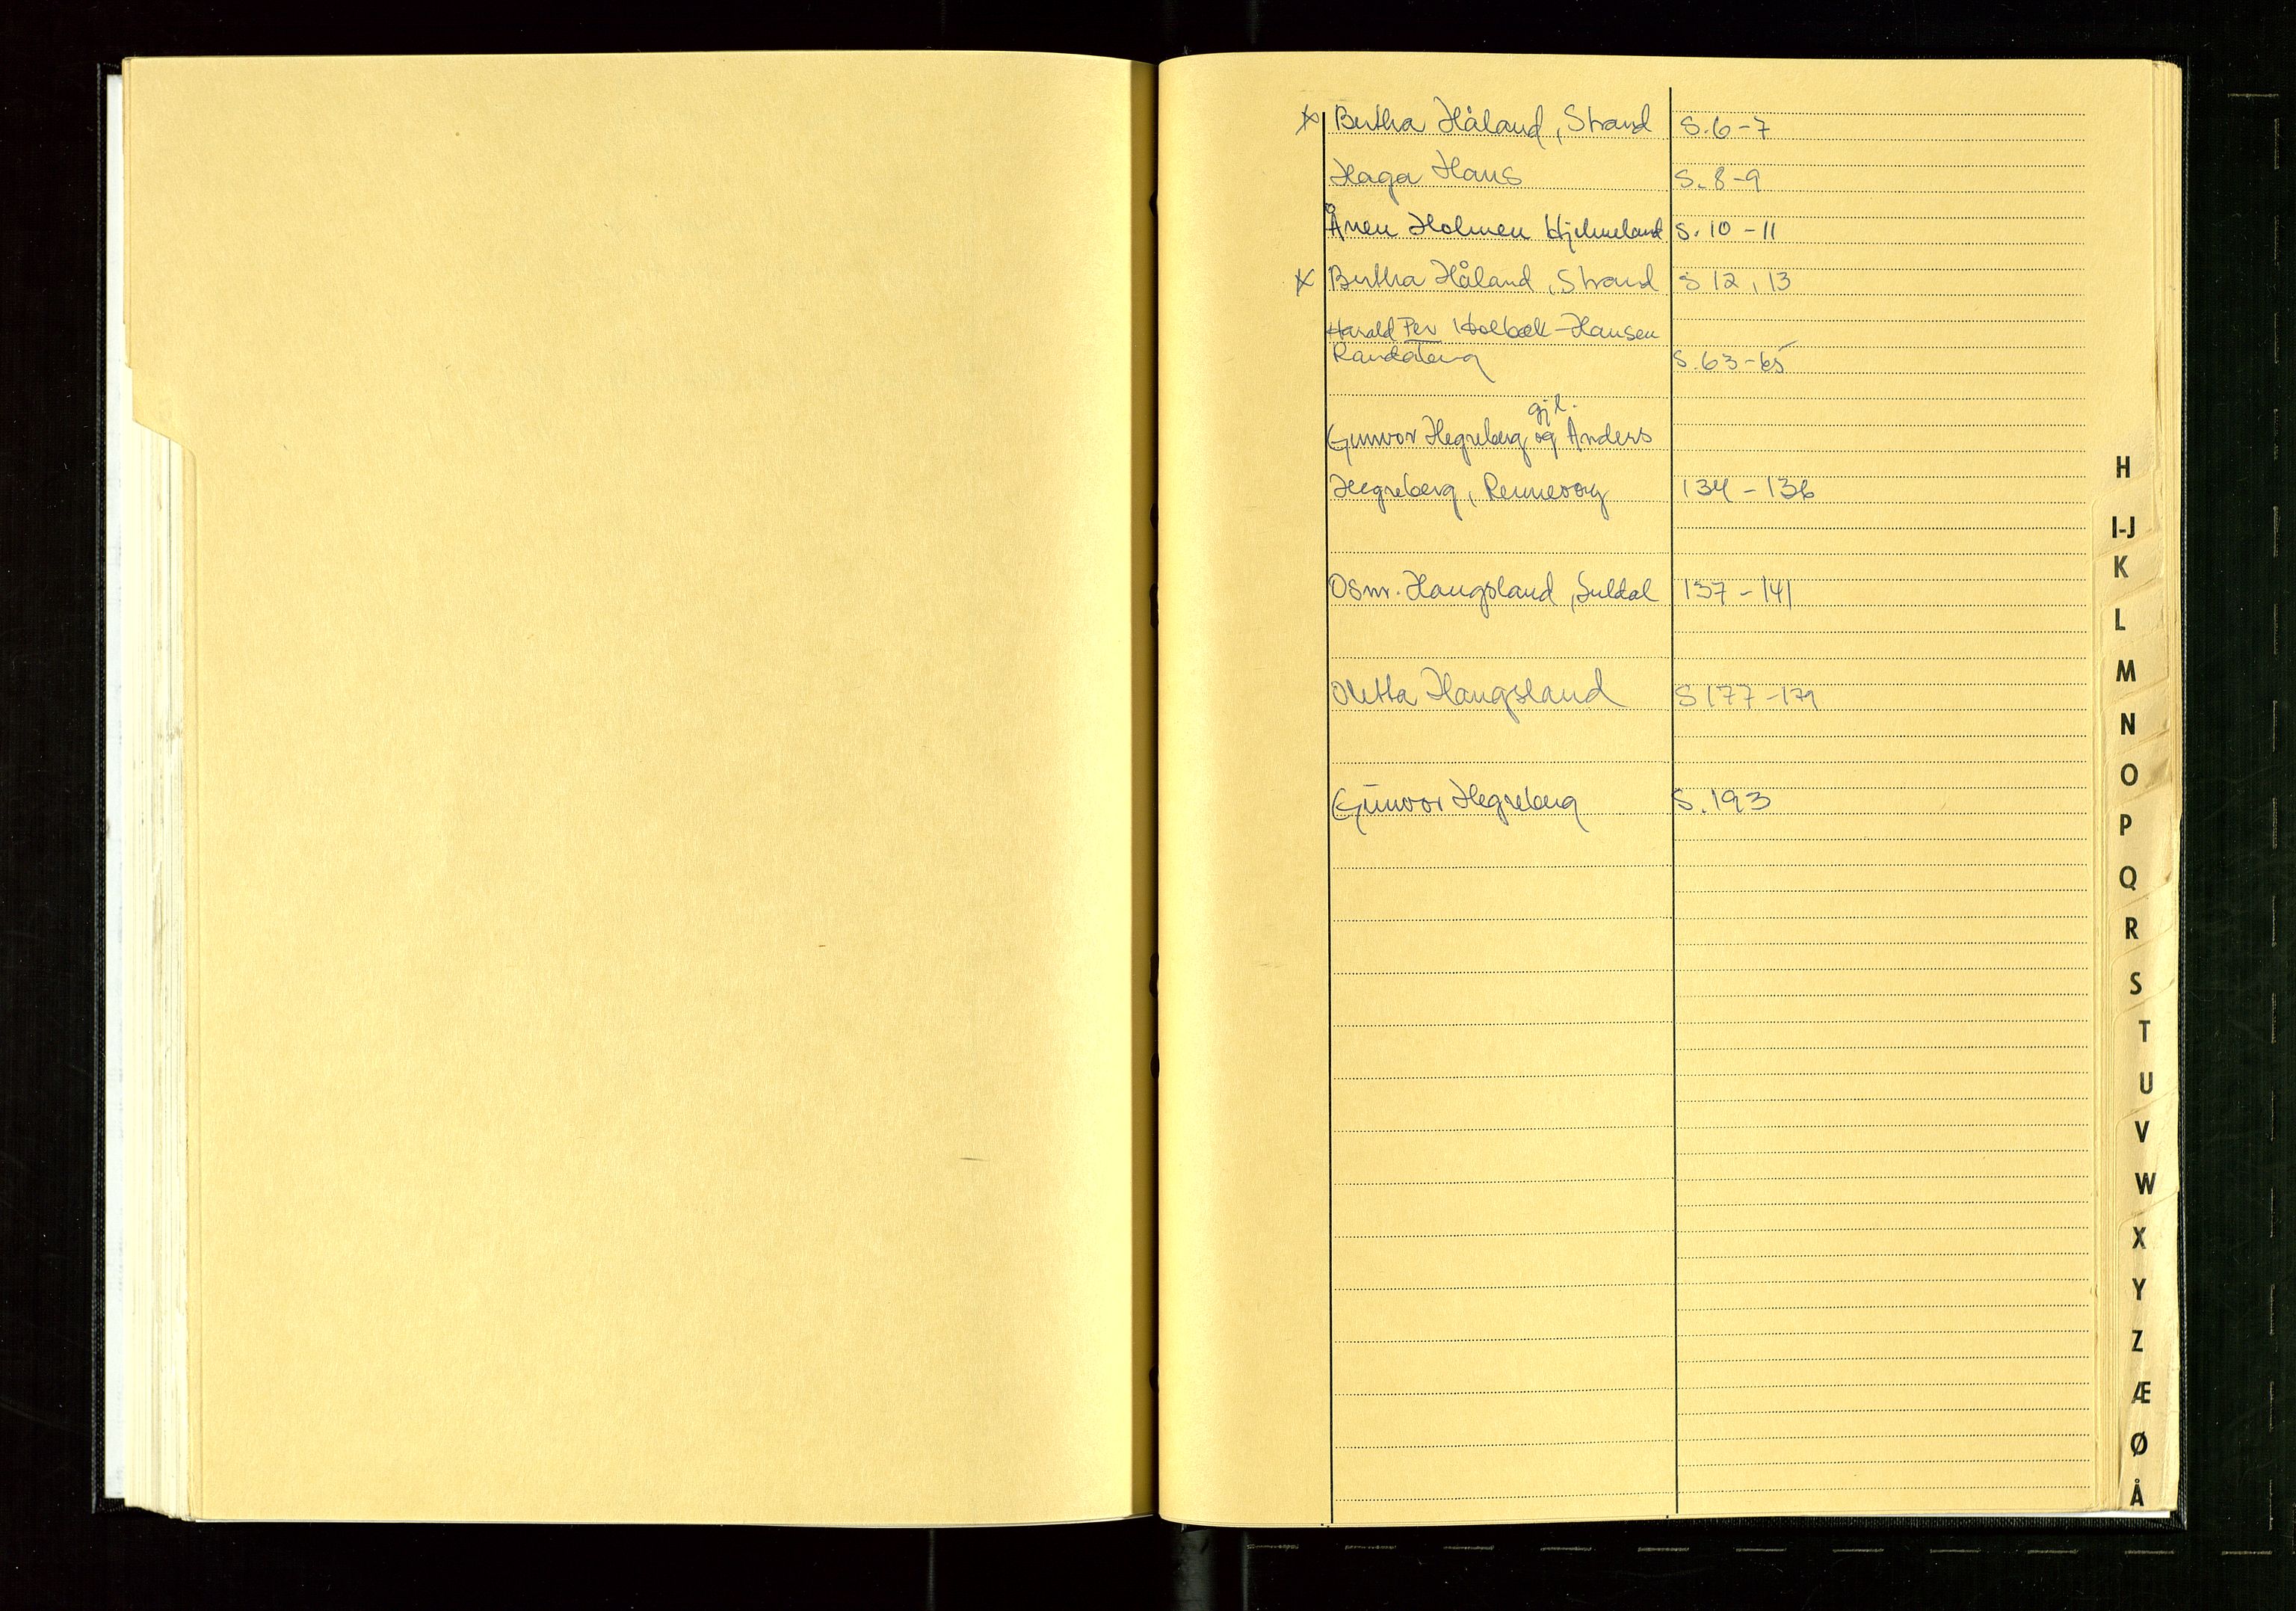 x Bertha Håland, Strand S. 6-7
Haga Hans S. 8-9
Ånen Holmen Hjelmeland S. 10-11
x Bertha Håland, Strand S 12, 13
Harald Per Holbæk-Hansen
Randaberg S. 63-65
gjl.
Gunvor Hegreberg og Anders
Hegreberg, Rennesøy 134-136
Osm. Haugsland, Suldal 137-141
Oletta Haugsland S 177-179
Gunvor Hegreberg S. 193
H
I-J
K
L
M
N
O
P
Q
R
S
T
U
V
W
X
Y
Z
Æ
Ø
Å